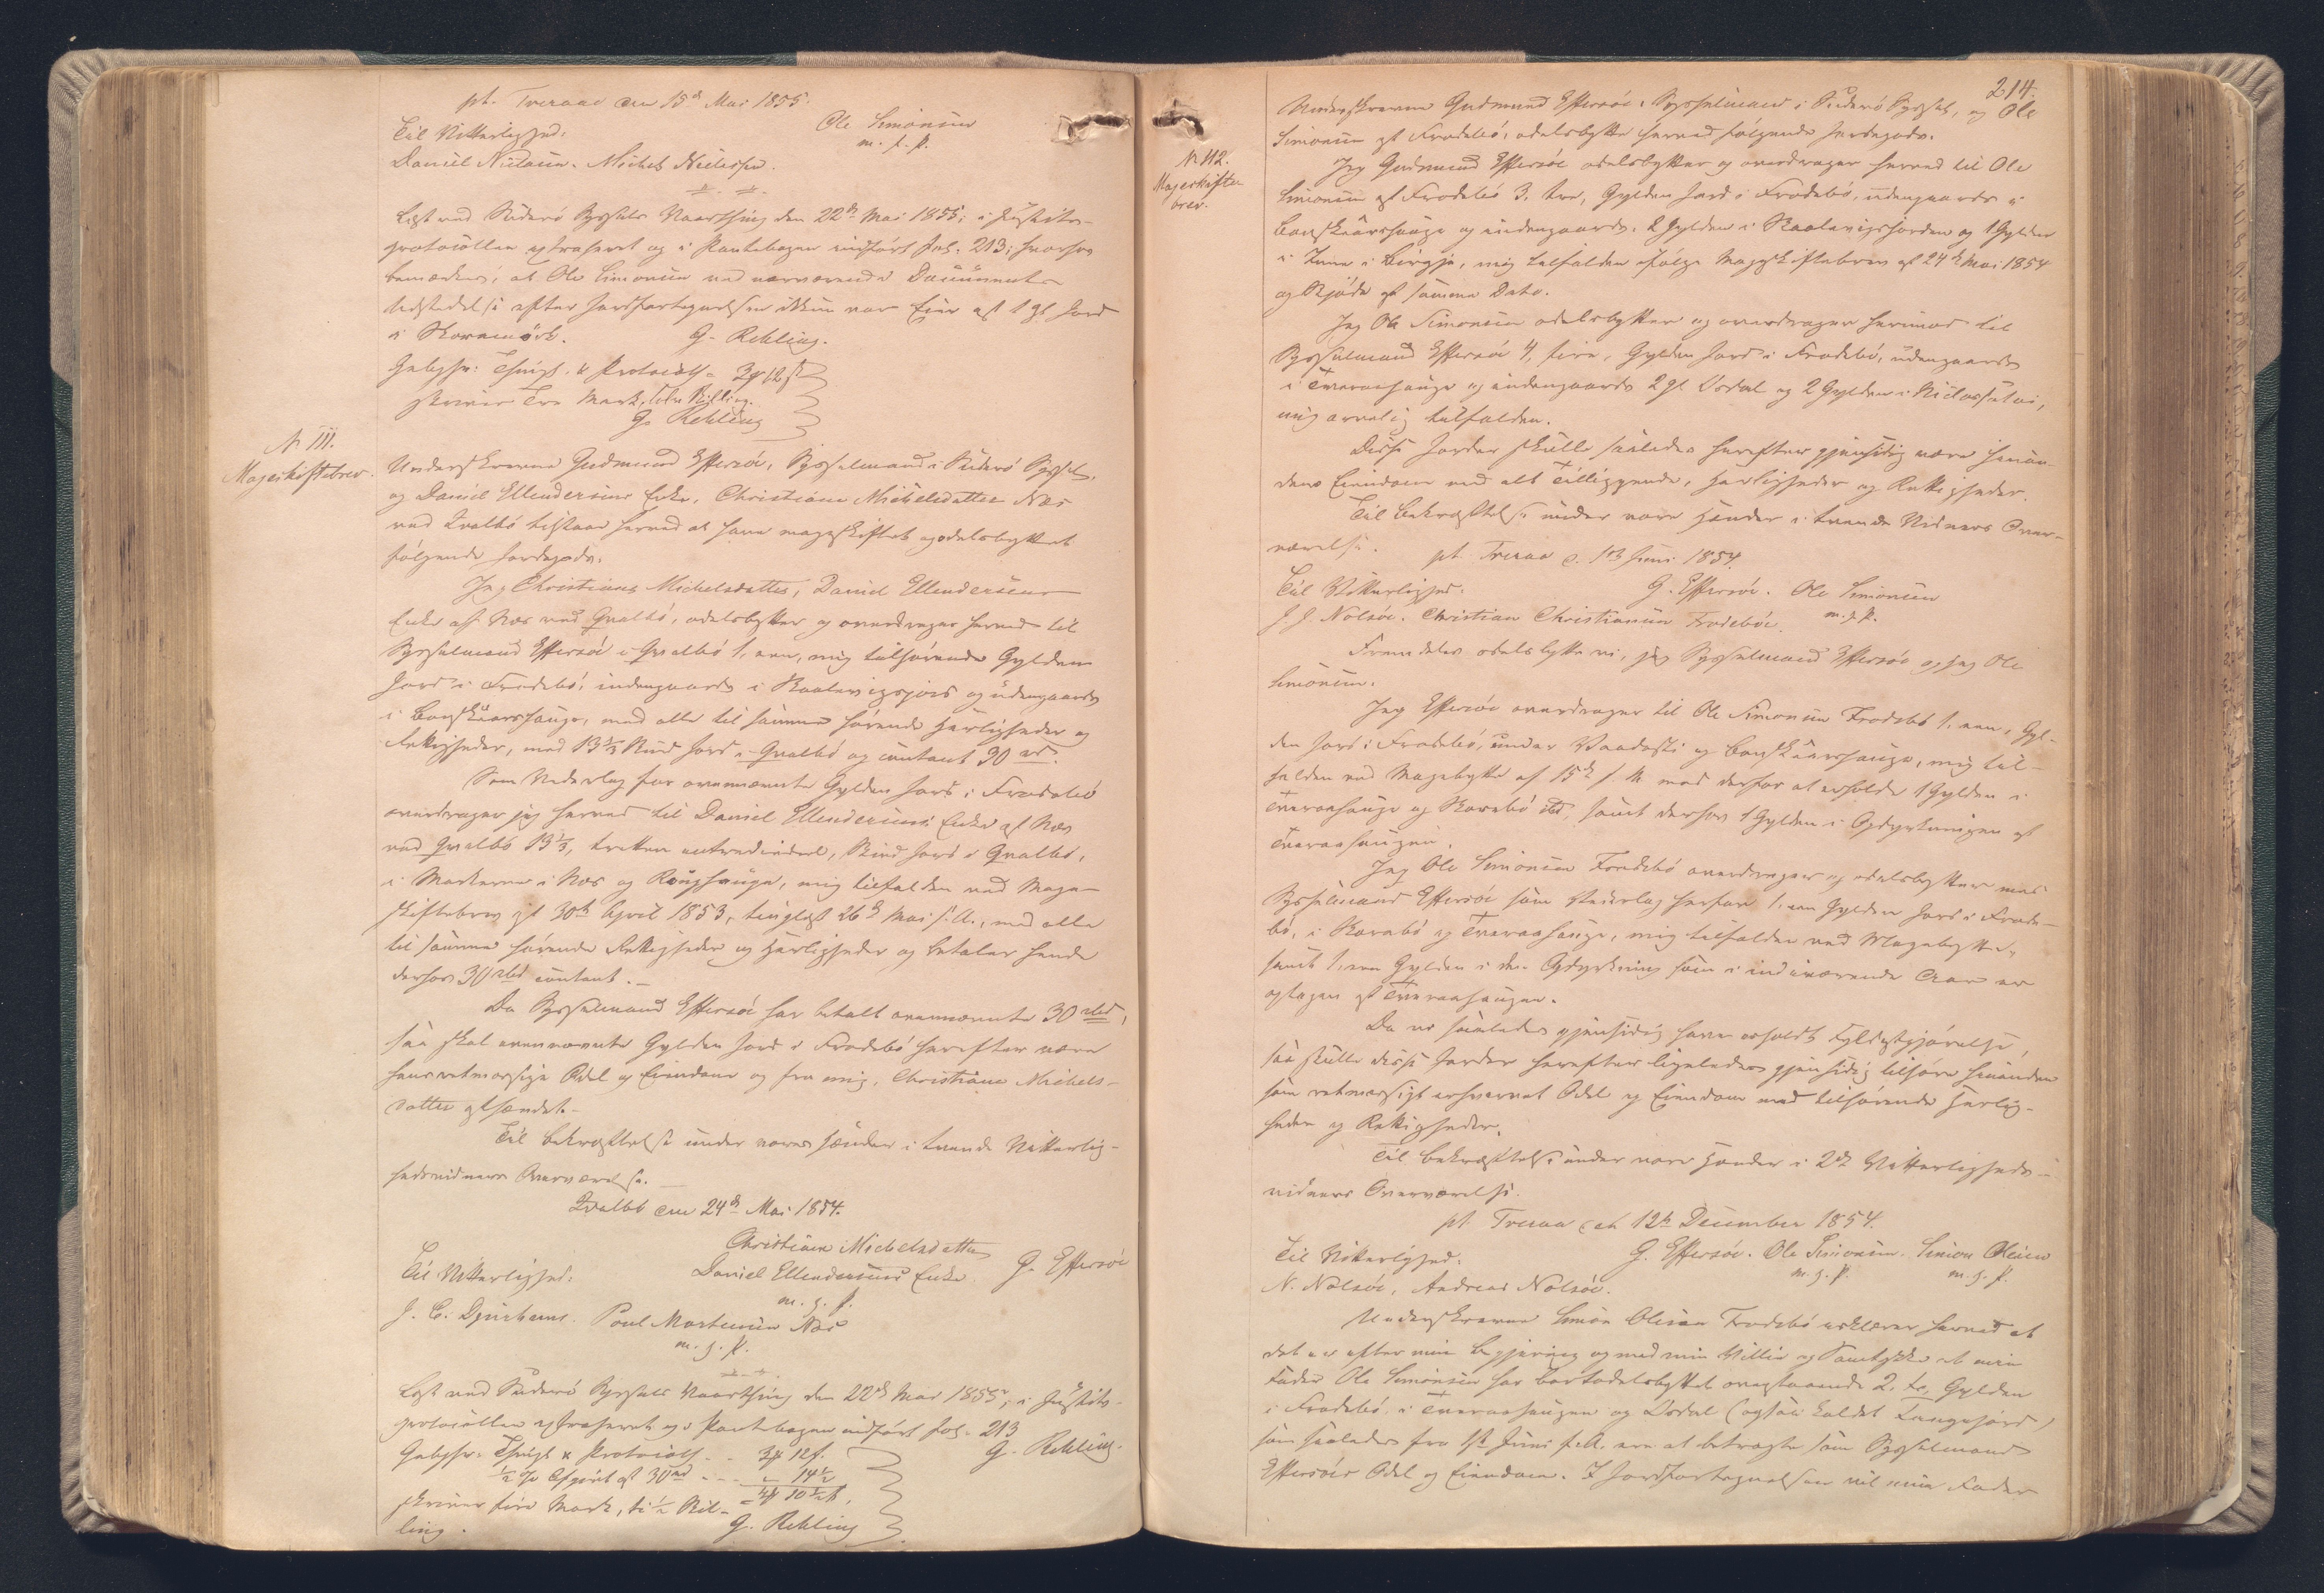 pt. Tveraae den 15de Mai 1855.
Til Vitterlighed:
Ole Simonsen
m. f. P.
Daniel Nielsen. Michel Nielsen.
Læst ved Suderö Syssels Vaarthing den 22de Mai 1855; i Justits-
protocollen extraheret og i Pantebogen indfört fol. 213; hvorhos
bemærkes, at Ole Simonsen ved nærværende Documents
Udstedelse efter Jordfortegnelsen ikkun var Eier af 1 gl. Jord
i
G. Rehling.
Gebyhr: Thingl. & Protocoll. 3 12 s
skriver Tre Mark, tolv Skilling.
G. Rehling
N 111.
Mageskiftebrev.
Underskrevne Gudmund Effersöe, Sysselmand i Suderö Syssel,
og Daniel Ellendersens Enke, Christiane Michelsdatter Næs
ved Qvalbö tilstaar herved at have mageskiftet og odelsbyttet
fölgende Jordegods:
Jeg Christiane Michelsdatter, Daniel Ellendersens
Enke af Næs ved Qvalbö, odelsbytter og overdrager herved til
Sysselmand Effersöe i Qvalbö 1, een, mig tilhörende Gylden
Jord i Frodebö, indengaards i og udengaards
i, med alle til samme hörende Herligheder og
Rettigheder, mod 13⅓ Skind Jord i Qvalbö og contant 30 rd.
Som Vederlag for ovennævnte Gylden Jord i Frodebö
overdrager jeg herved til Daniel Ellendersens Enke af Næs
ved Qvalbö 13⅓, tretten entrediedeel, Skind Jord i Qvalbö,
i Markerne i Næs og, mig tilfalden ved Mage-
skiftebrev af 30te April 1853, tinglæst 26de Mai s. A., med alle
til samme hörende Rettigheder og Herligheder og betaler hende
derhos 30 rbd contant.
Da Sysselmand Effersöe har betalt ovennævnte 30 rbd,
saa skal ovennævnte Gylden Jord i Frodebö herefter være
hans retmæssige Odel og Eiendom og fra mig, Christiane Michels-
datter afhændet.
Til Bekræftelse under vores Hænder i tvende Vitterlig-
hedsvidners Overværelse.
Qvalbö den 24de Mai 1854.
Christiane Michelsdatter
Til Vitterlighed:
Daniel Ellendersens Enke
G. Effersöe
m. f. P.
J. C. Djurhuus. Poul Mortensen Næs
m. f. P.
Læst ved Suderö Syssels Vaarthing den 22de Mai 1855; i Justits-
protocollen extraheret og i Pantebogen indfört fol. 213
G. Rehling.
Gebyhr: Thingl. & Protocoll. 3 12 s.
½ % Afgivt af 30 rd 14½
4 10½ s.
skriver fire Mark, ti ½ Skil-
ling.
G. Rehling
214.
N 112.
Mageskifte-
brev.
Underskrevne Gudmund Effersöe, Sysselmand i Suderö Syssel, og Ole
Simonsen af Frodebö, odelsbytte herved fölgende Jordegods.
Jeg Gudmund Effersöe odelsbytter og overdrager herved til Ole
Simonsen af Frodebö 3, tre, Gylden Jord i Frodebö, udengaards i
og indengaards, 2 Gylden i og 1 Gylden
i, mig tilfalden ifölge Mageskiftebrev af 24de Mai 1854
og Skjöde af samme Dato.
Jeg Ole Simonsen odelsbytter og overdrager herimod til
Sysselmand Effersöe 4, fire, Gylden Jord i Frodebö, udengaards
i Tveraahauge og indengaards 2 gl. og 2 Gylden i,
mig arvelig tilfalden.
Disse Jorder skulle saaledes herefter gjensidig være hinan-
dens Eiendom med alt Tilliggende, Herligheder og Rettigheder.
Til Bekræftelse under vore Hænder i tvende Vidners Over-
værelse.
pt. Tveraa d. 1ste Juni 1854.
Til Vitterlighed:
G. Effersöe. Ole Simonsen
m. f. P.
J. J. Nolsöe. Christian Christiansen Frodeböe.
Fremdeles odelsbytte vi, jeg Sysselmand Effersöe og jeg Ole
Simonsen.
Jeg Effersöe overdrager til Ole Simonsen Frodebö 1, een, Gyl-
den Jord i Frodebö, under og, mig til-
falden ved Magebytte af 15de mod derfor at erholde 1 Gylden i
Tveraahauge og, samt derhos 1 Gylden i Opdyrkningen af
Tveraahaugen.
Jeg Ole Simonsen Frodebö overdrager og odelsbytter med
Sysselmand Effersöe som Vederlag herfor 1, een Gylden Jord i Frode-
bö, i og Tveraahauge, mig tilfalden ved Magebytte,
samt 1, een Gylden i den Opdyrkning som i indeværende Aar er
optagen af Tveraahaugen.
Da vi saaledes gjensidig have erholdt Fyldestgjörelse,
saa skulle disse Jorder herefter ligeledes gjensidig tilhöre hinanden
som retmæssigt erhvervet Odel og Eiendom med tilhörende Herlig-
heder og Rettigheder.
Til Bekræftelse under vore Hænder i 2de Vitterligheds-
vidners Overværelse.
pt. Tveraa den 12te December 1854.
Til Vitterlighed:
G. Effersöe. Ole Simonsen. Simon Olesen
m. f. P.
m. f. P.
N. Nolsöe, Andreas Nolsöe.
Underskrevne Simon Olesen Frodebö erklærer herved at
det er efter min Begjæring og med min Villie og Samtykke at min
Fader Ole Simonsen har bortodelsbyttet ovenstaaende 2, to, Gylden
i Frodebö i Tveraahaugen og (ogsaa kaldet),
som saaledes fra 1ste Juni f. A. ere at betragte som Sysselmand
Effersöes Odel og Eiendom. I Jordfortegnelsen vil min Fader